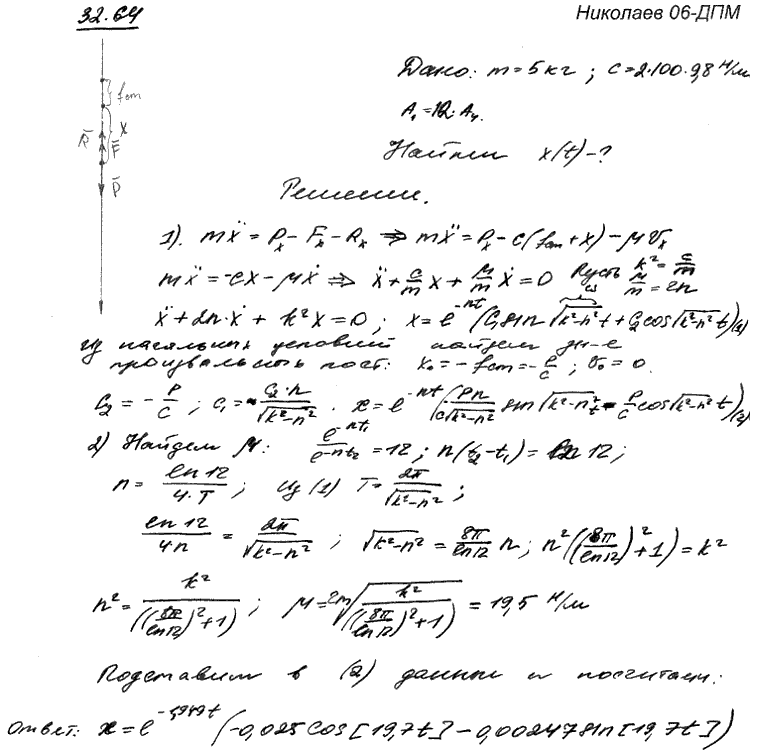 32.64
Николаев 06-ДПМ
Дано: m = 5 кг ; c = 2·100·9,8 н/м
A₁ = 12·A₄.
Найти x(t) - ?
f ст
x
R̄ F̄
P̄
Решение.
1). mẍ = Pₓ - Fₓ - Rₓ ⇒ mẍ = Pₓ - c(f ст + x) - μVₓ
mẍ = -cx - μẋ ⇒ ẍ + c/m x + μ/m ẋ = 0 Пусть k² = c/m μ/m = 2n
ẍ + 2n·ẋ + k²x = 0 ; x = e^(-nt) (C₁ sin √(k²-n²) t + C₂ cos √(k²-n²) t) (1)
Из начальных условий найдем зн-е
произвальных пост: x₀ = - f ст = - P/c ; V₀ = 0.
C₂ = - P/c ; C₁ = C₂·n/√(k²-n²) . x = e^(-nt) (Pn/(c√(k²-n²)) sin √(k²-n²) t - P/c cos √(k²-n²) t) (2)
2) Найдем μ: e^(-nt₁)/e^(-nt₂) = 12 ; n(t₂ - t₁) = ln 12 ;
n = ln 12/(4·T) ; Из (1) T = 2π/√(k²-n²) ;
ln 12/4n = 2π/√(k²-n²) ; √(k²-n²) = 8π/ln12 n ; n²((8π/ln12)² + 1) = k²
n² = k²/((8π/ln12)² + 1) ; μ = 2m √(k²/((8π/ln12)² + 1)) = 19,5 н/м
Подставим в (2) данные и посчитаем:
Ответ: x = e^(-1,949t) (-0,025 cos [19,7t] - 0,00247 sin [19,7t])